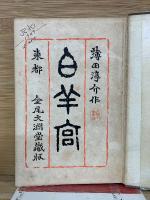 薄田淳介作
白羊宮
東都
金尾文淵堂蔵版